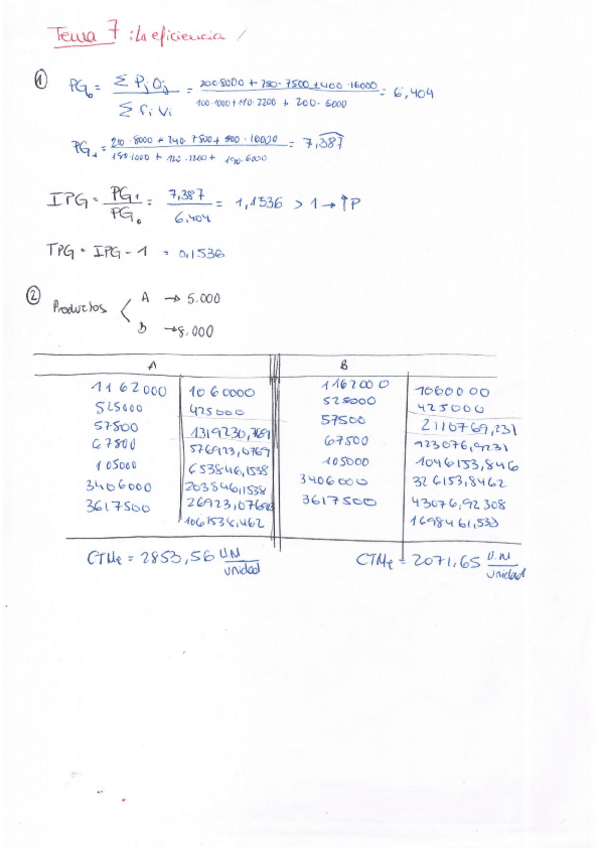 Tema 7: la eficiencia /
① PG₀ = Σ Pj Oj / Σ ri Vi = 200·8000 + 250·7500 + 400·16000 / 100·1000 + 110·2200 + 200·6000 = 6,404
PG₁ = 210·8000 + 240·7500 + 500·16000 / 150·1000 + 120·2200 + 190·6000 = 7,387
IPG = PG₁ / PG₀ = 7,387 / 6,404 = 1,1536 > 1 → ↑P
TPG = IPG - 1 = 0,1536
② Productos < A → 5.000
B → 8.000
A B
1162000 1060000 1162000 1060000
525000 425000 525000 425000
57500 1319230,769 57500 2110769,231
67500 576923,0769 67500 923076,9231
105000 653846,1538 105000 1046153,846
3406000 203846,1538 3406000 326153,8462
3617500 26923,07692 3617500 43076,92308
1061538,462 1698461,539
CTMe = 2853,56 UN/unidad CTMe = 2071,65 U.N/unidad